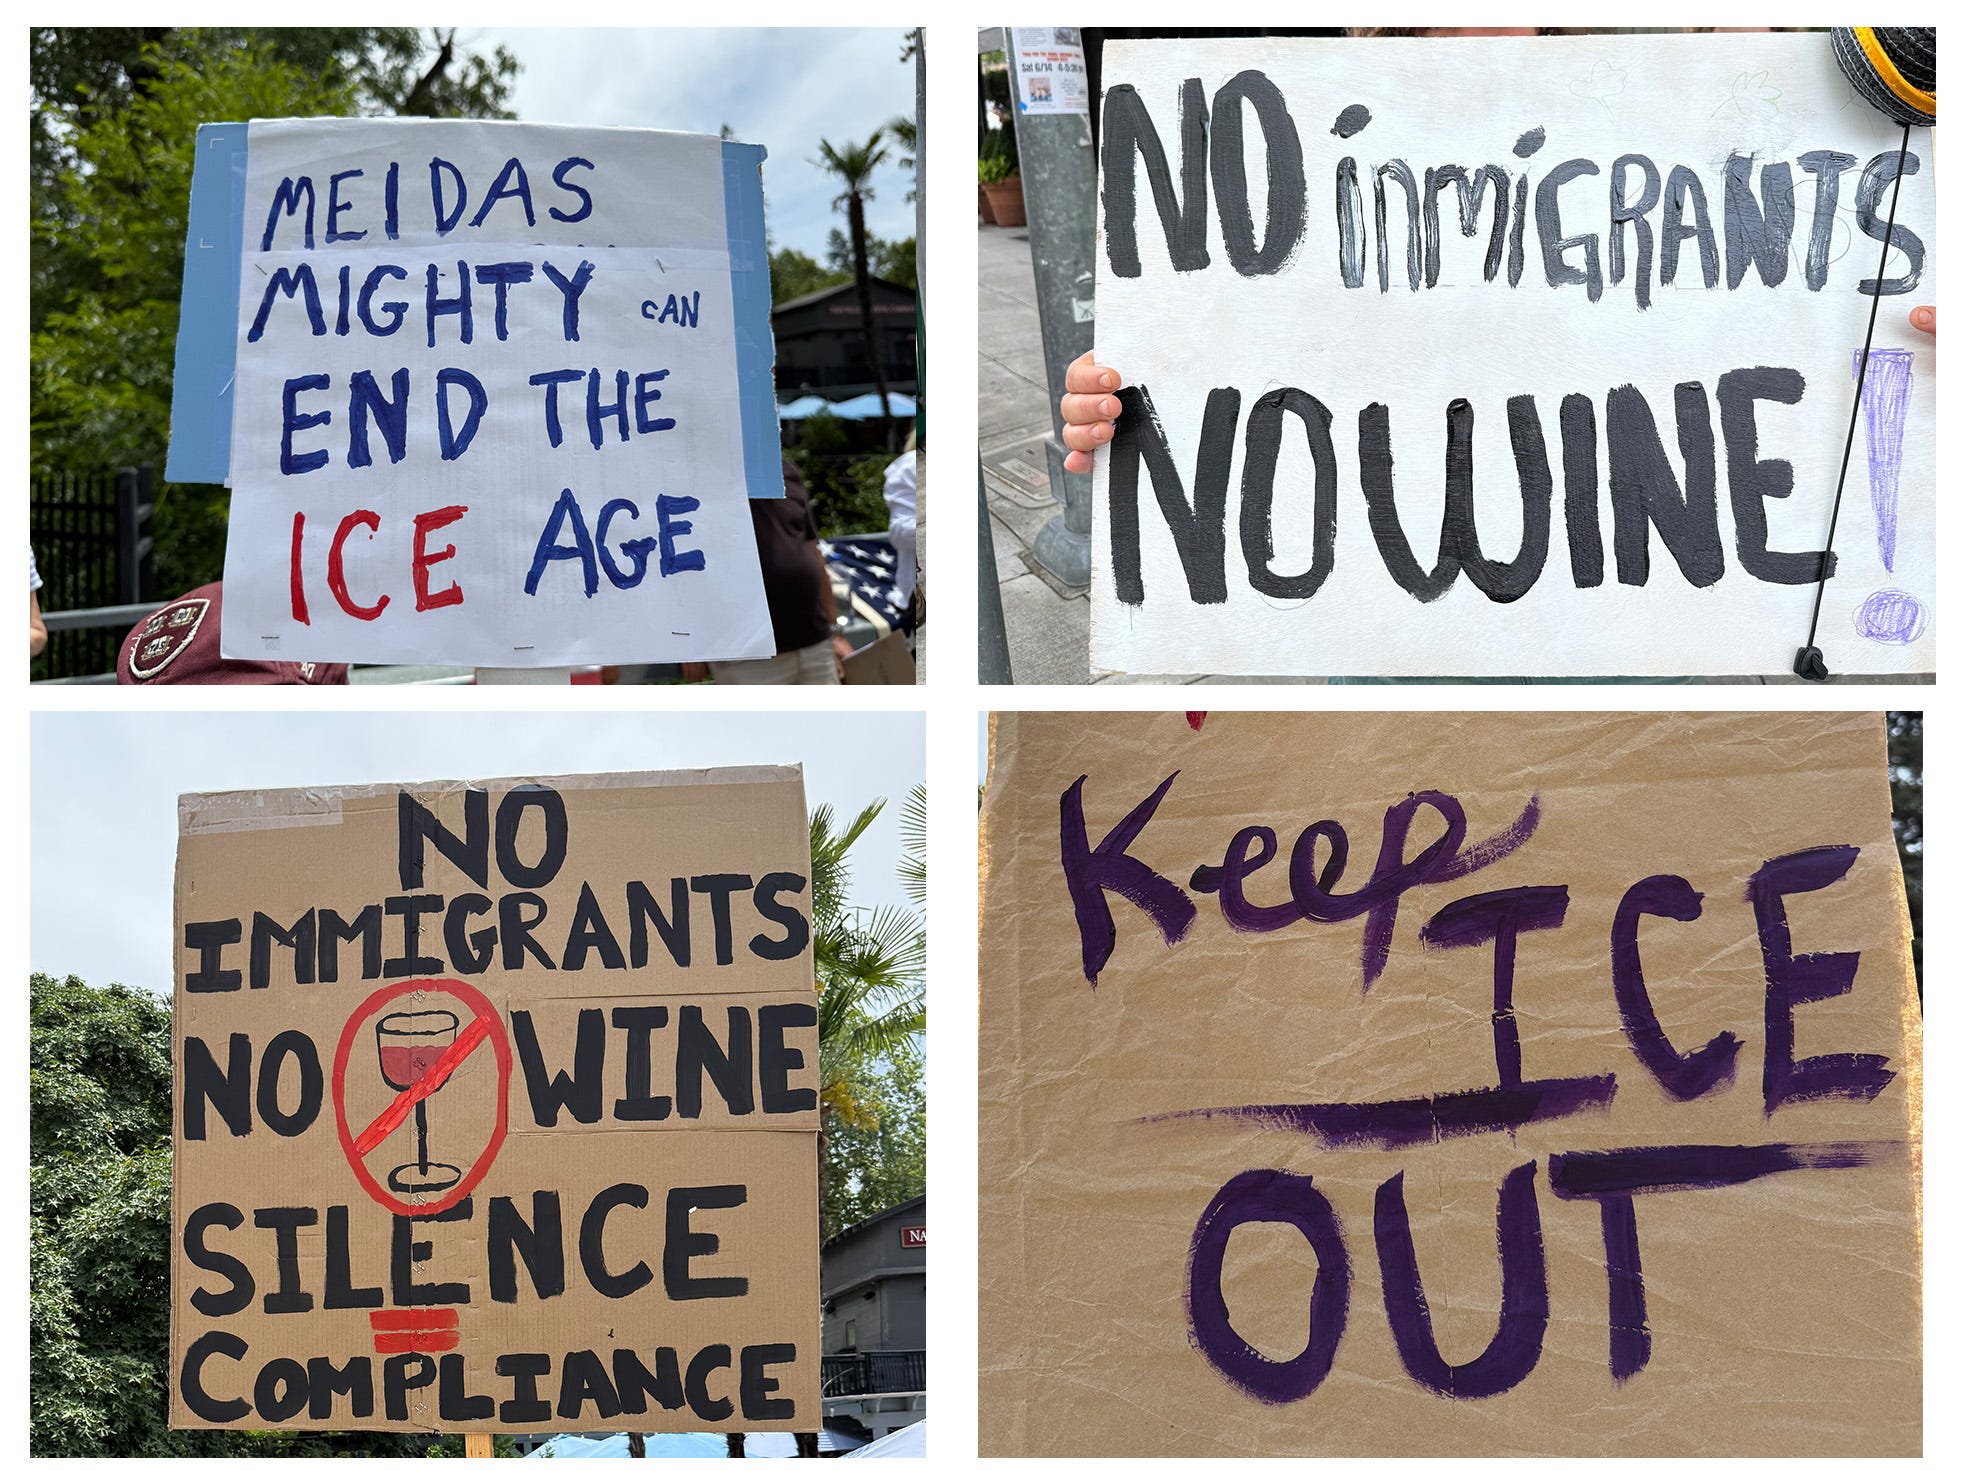 MEIDAS
MIGHTY CAN
END THE
ICE AGE
47
Sat 6/14 4-5:30
NO immiGRANTS
NO WINE!
NO
IMMIGRANTS
NO WINE
SILENCE
=
COMPLIANCE
NA
Keep
ICE
OUT